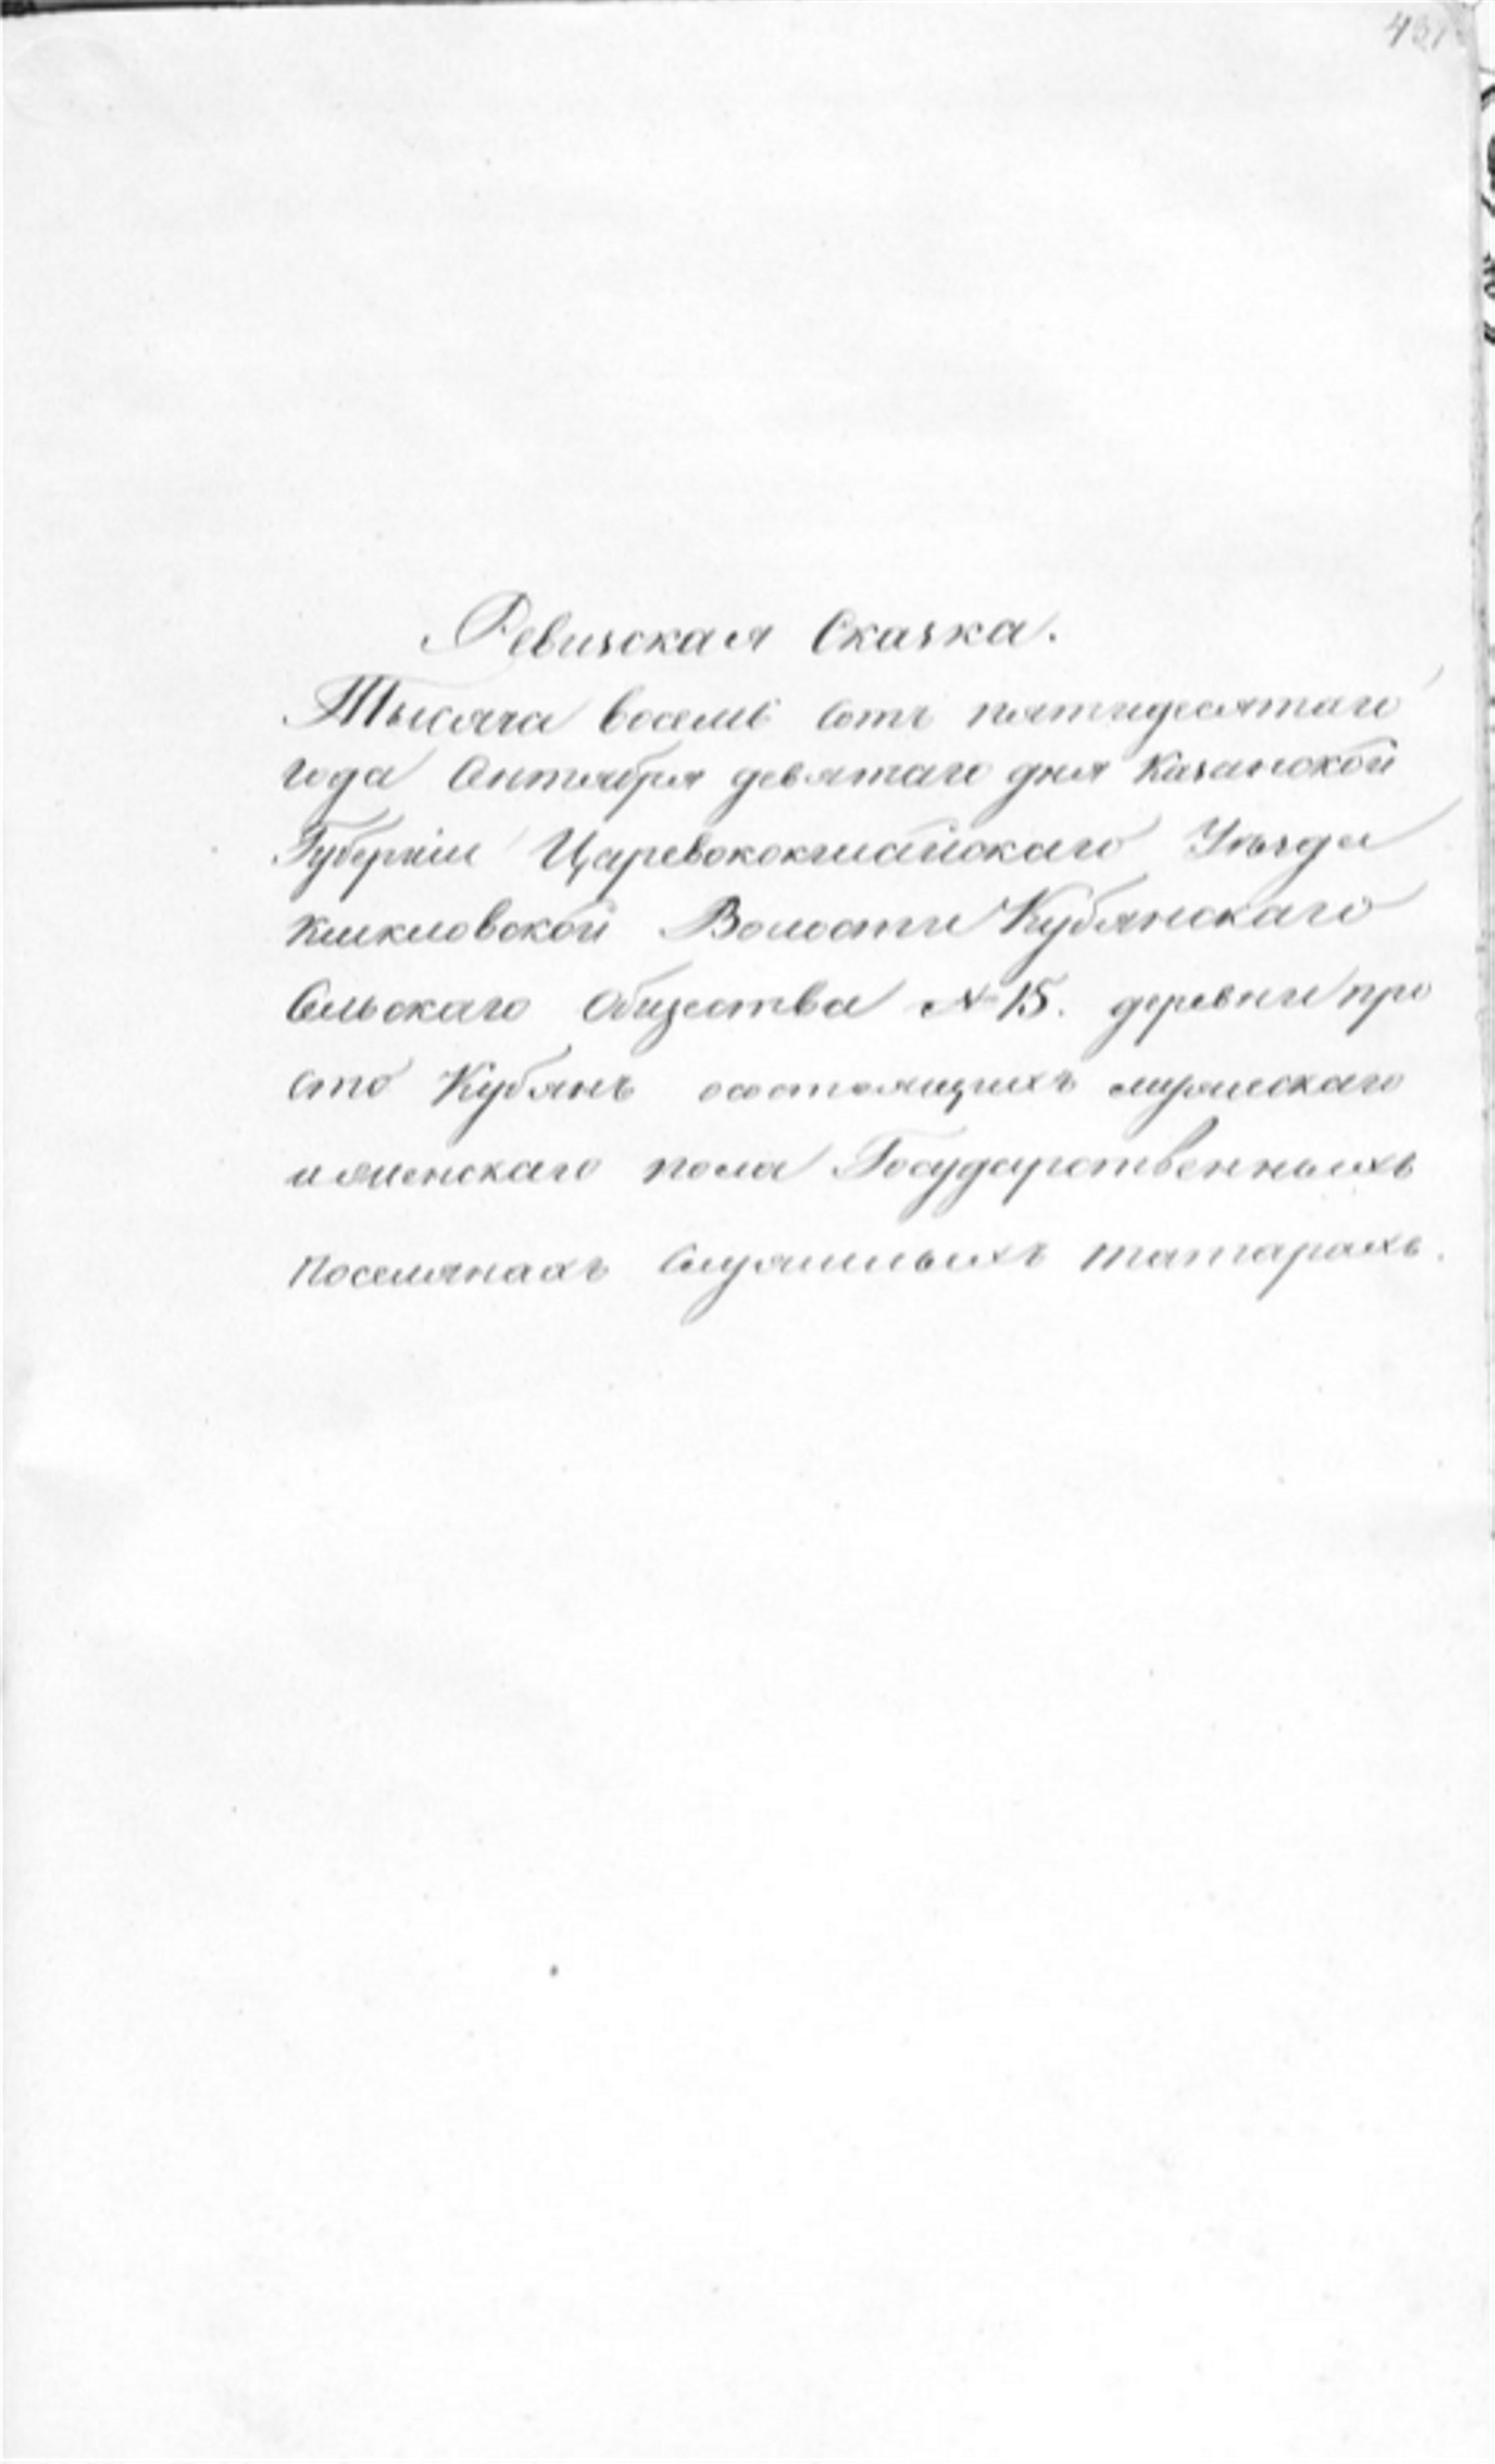 Ревизская Сказка.
Тысяча восемь сотъ пятидесятаго
года Сентября девятаго дня Казанской
Губерніи Царевококшайскаго Уѣзда
Волости Кубянскаго
Сельскаго Общества №15. деревни про
сто Кубянъ осостоящихъ мужескаго
и женскаго пола Государственныхъ
поселянахъ Служилыхъ татарахъ.